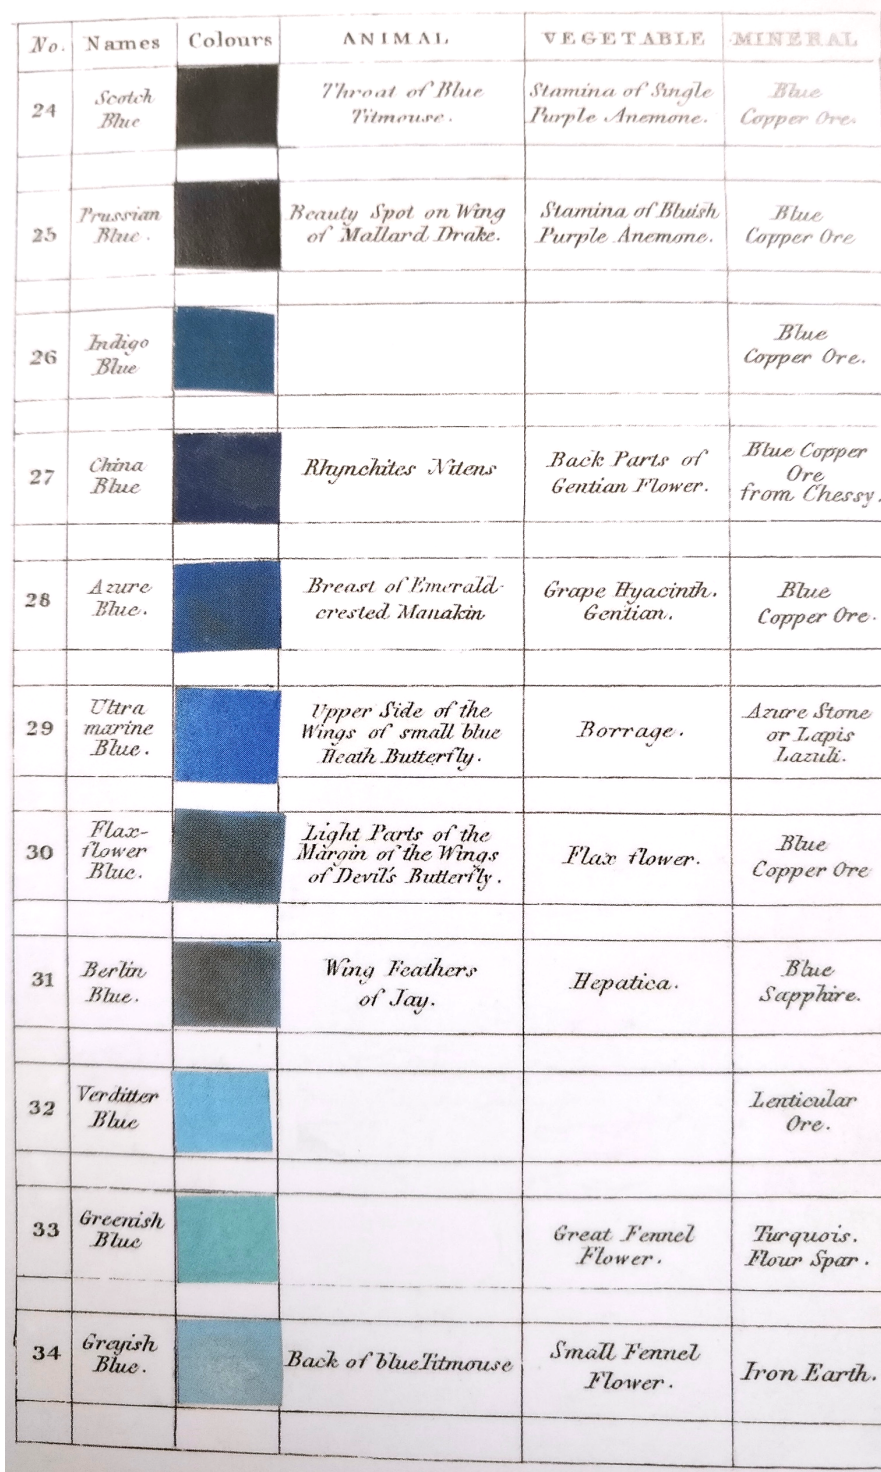 No. Names Colours ANIMAL VEGETABLE MINERAL
24
Scotch
Blue
Throat of Blue
Titmouse.
Stamina of Single
Purple Anemone.
Blue
Copper Ore.
25
Prussian
Blue.
Beauty Spot on Wing
of Mallard Drake.
Stamina of Bluish
Purple Anemone.
Blue
Copper Ore
26
Indigo
Blue
Blue
Copper Ore.
27
China
Blue
Rhynchites Nitens
Back Parts of
Gentian Flower.
Blue Copper
Ore
from Chessy.
28
Azure
Blue.
Breast of Emerald-
crested Manakin
Grape Hyacinth.
Gentian.
Blue
Copper Ore.
29
Ultra
marine
Blue.
Upper Side of the
Wings of small blue
Heath Butterfly.
Borrage.
Azure Stone
or Lapis
Lazuli.
30
Flax-
flower
Blue.
Light Parts of the
Margin of the Wings
of Devil's Butterfly.
Flax flower.
Blue
Copper Ore
31
Berlin
Blue.
Wing Feathers
of Jay.
Hepatica.
Blue
Sapphire.
32
Verditter
Blue
Lenticular
Ore.
33
Greenish
Blue
Great Fennel
Flower.
Turquois.
Flour Spar.
34
Greyish
Blue.
Back of blue Titmouse
Small Fennel
Flower.
Iron Earth.